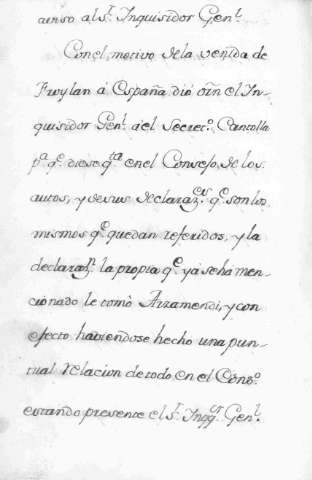 aviso al S.r Inquisidor Gen.l
Con el motivo de la venida de
Froylan á España dió orñ el In-
quisidor Gen.l á el Secret.o Cantolla
p.a q.e diese q.ta en el Consejo de los
autos, y de sus declaraz.es q.e son los
mismos q.e quedan referidos, y la
declaraz.n la propia q.e yá se há men-
cionado le tomò Arzamendi, y con
efecto haviendose hecho una pun-
tual relacion de todo en el Cons.o
estando presente el S.r Inqq.or Gen.l